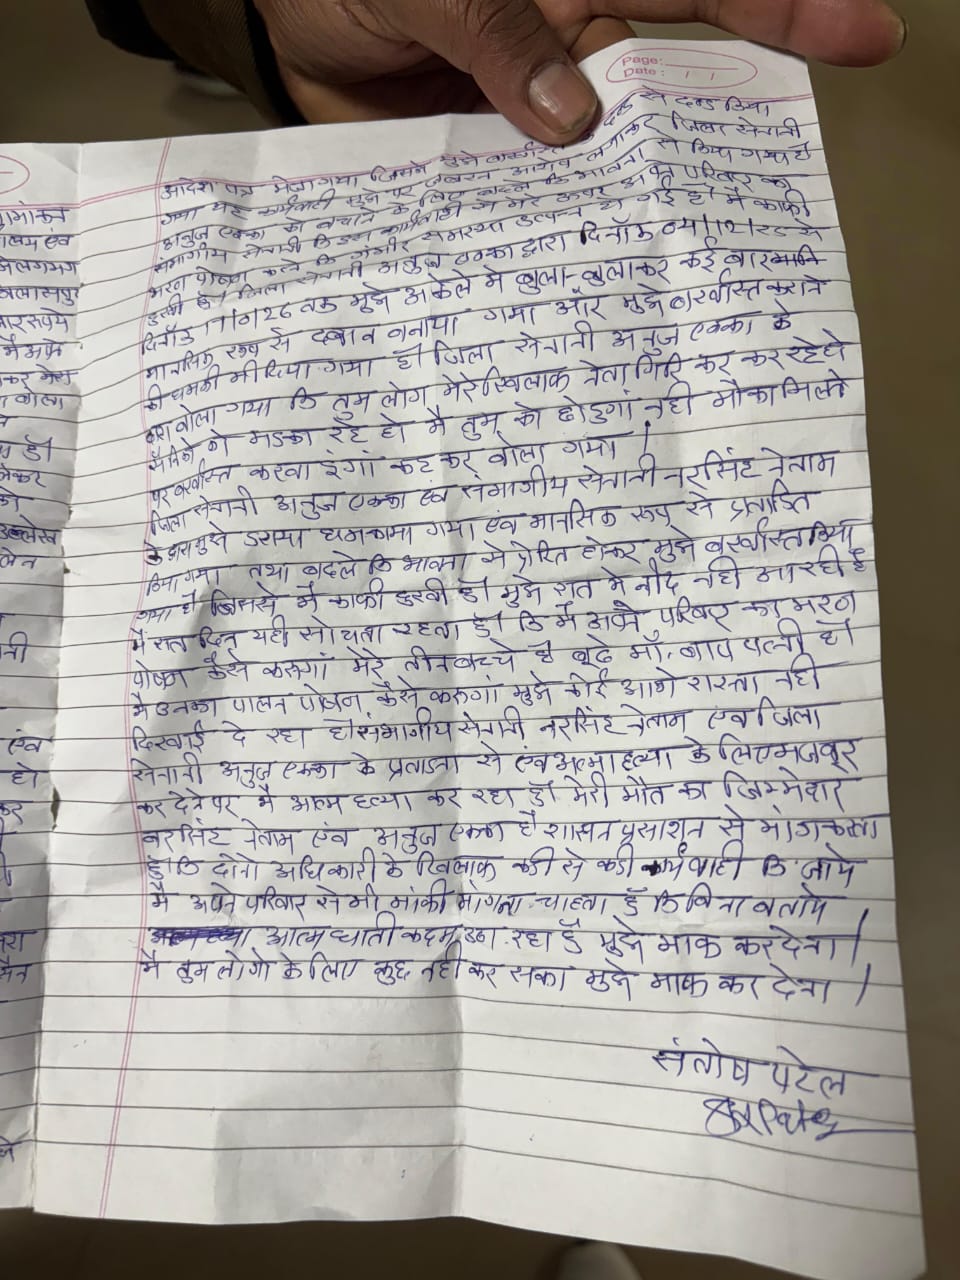 Page:
Date:
आदेश पत्र भेजा गया जिसमे मुझे बर्खास्त के दण्ड से दण्ड दिया
गया यह कार्यवाही मुझे पर जबरन आरोप लगाकर जिला सेनानी
अनुज एक्का को बचाने के लिए बदले कि भावना से किया गया है
संभागीय सेनानी कि इस कार्यवाही से मेरे ऊपर अपने परिवार का
भरण पोषण करने कि गंभीर समस्या उत्पन्न हो गई है। मै काफी
दुखी हूँ। जिला सेनानी अनुज एक्का द्वारा दिनाँक से
दिनाँक तक मुझे अकेले मे बुला-बुलाकर कई बार
मानसिक रूप से दबाव बनाया गया और मुझे बर्खास्त कराने
की धमकी भी दिया गया है। जिला सेनानी अनुज एक्का के
द्वारा बोला गया कि तुम लोग मेरे खिलाफ नेता गिरि कर कर रहे थे
सैनिको को भडका रहे हो मै तुम को छोडुगां नही मौका मिलते
पर बर्खास्त करवा दुंगां कह कर बोला गया।
जिला सेनानी अनुज एक्का एंव संभागीय सेनानी नरसिंह नेताम
के द्वारा मुझे डराया धमकाया गया एंव मानसिक रूप से प्रताडित
किया गया तथा बदले कि भावना से प्रेरित होकर मुझे बर्खास्त किया
गया है जिससे मैं काफी दुखी हूँ। मुझे रात मे नींद नही आ रही है
मै रात दिन यही सोचता रहता हूँ। कि मैं अपने परिवार का भरण
पोषण कैसे करूगां मेरे तीन बच्चे है बूढे माँ, बाप पत्नी है।
मै उनका पालन पोषन कैसे करूगां मुझे कोई आगे रास्ता नही
दिखाई दे रहा है। संभागीय सेनानी नरसिंह नेताम एंव जिला
सेनानी अनुज एक्का के प्रताडना से एंव आत्माहत्या के लिए मजबूर
कर देने पर मै आत्म हत्या कर रहा हूँ। मेरी मौत का जिम्मेदार
नरसिंह नेताम एंव अनुज एक्का है शासन प्रसाशन से मांग करता
हूँ कि दोनो अधिकारी के खिलाफ कडी से कडी कार्यवाही कि जाये
मै अपने परिवार से भी मांफी मांगना चाहता हूँ कि बिना बताये
आत्म घाती कदम उठा रहा हूँ मुझे माफ कर देना।
मै तुम लोगो के लिए कुछ नही कर सका मुझे माफ कर देना।
संतोष पटेल